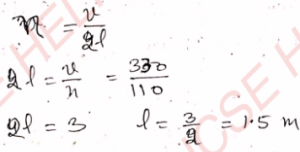 n = v/2l
2l = v/n = 330/110
2l = 3 l = 3/2 = 1.5 m